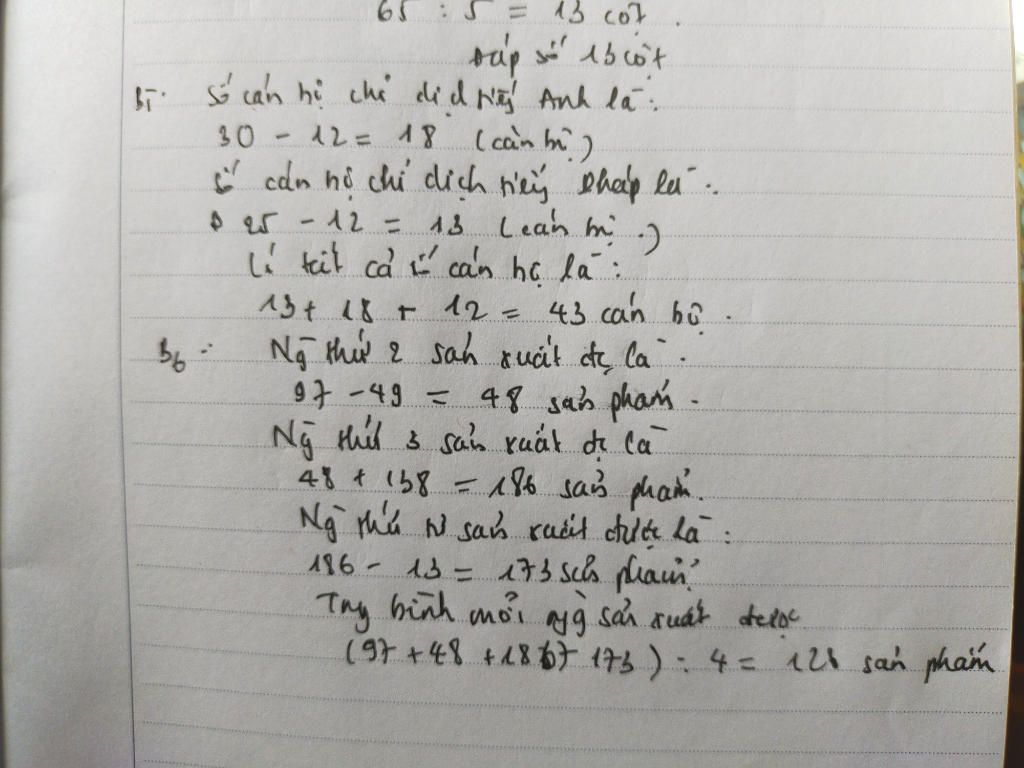 65 : 5 = 13 cột.
Đáp số 13 cột
B5. Số cán bộ chỉ dịch tiếng Anh là:
30 - 12 = 18 (cán bộ)
Số cán bộ chỉ dịch tiếng Pháp là:
25 - 12 = 13 (cán bộ.)
Có tất cả số cán bộ là:
13 + 18 + 12 = 43 cán bộ.
B6: Ng thứ 2 sản xuất đc là.
97 - 49 = 48 sản phẩm.
Ng thứ 3 sản xuất đc là
48 + 138 = 186 sản phẩm.
Ng thứ tư sản xuất được là:
186 - 13 = 173 sản phẩm
Tng bình mỗi ng sản xuất được
(97 + 48 + 186 + 173) : 4 = 128 sản phẩm